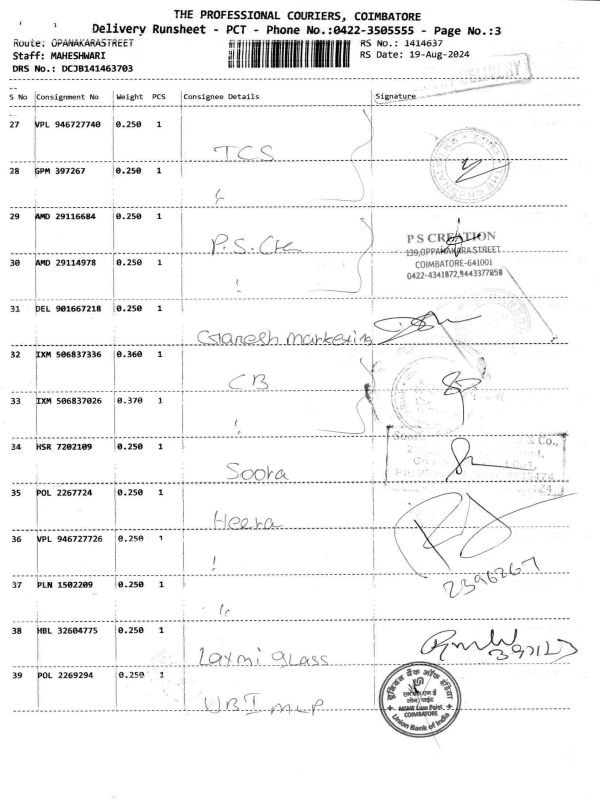 THE PROFESSIONAL COURIERS, COIMBATORE
Delivery Runsheet - PCT - Phone No.:0422-3505555 - Page No.:3
Route: OPANAKARASTREET
RS No.: 1414637
Staff: MAHESHWARI
RS Date: 19-Aug-2024
DRS No.: DCJB141463703
S No Consignment No Weight PCS Consignee Details Signature
27 VPL 946727740 0.250 1
TCS
28 GPM 397267 0.250 1
29 AMD 29116684 0.250 1
P.S.
P S CREATION
139,OPPANAKARA STREET
30 AMD 29114978 0.250 1
COIMBATORE-641001
0422-4341872,9443377858
31 DEL 901667218 0.250 1
Ganesh marketing
32 IXM 506837336 0.360 1
CB
33 IXM 506837026 0.370 1
34 HSR 7202109 0.250 1
& Co.,
Soora
35 POL 2267724 0.250 1
Heera
36 VPL 946727726 0.250 1
2396267
37 PLN 1502209 0.250 1
38 HBL 32604775 0.250 1
Laxmi glass
39 POL 2269294 0.250 1
UBI MLP
यूनियन बैंक ऑफ इंडिया
MSME Loan Point
COIMBATORE
Union Bank of India